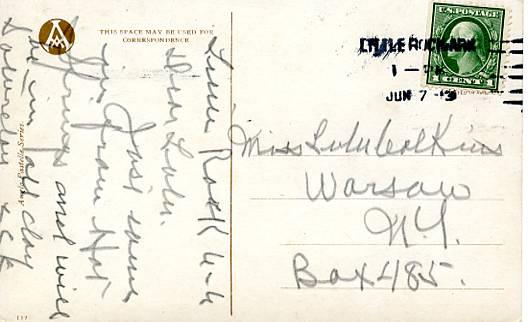 THIS SPACE MAY BE USED FOR
CORRESPONDENCE
Little Rock
Dear Lulu.
Just came
from Hot
Springs and will
be in all day
Saturday
Series
117
U.S. POSTAGE
LITTLE ROCK, ARK
1 —
JUN 7
Miss Lulu Calkins
Warsaw
N.Y.
Box 485.